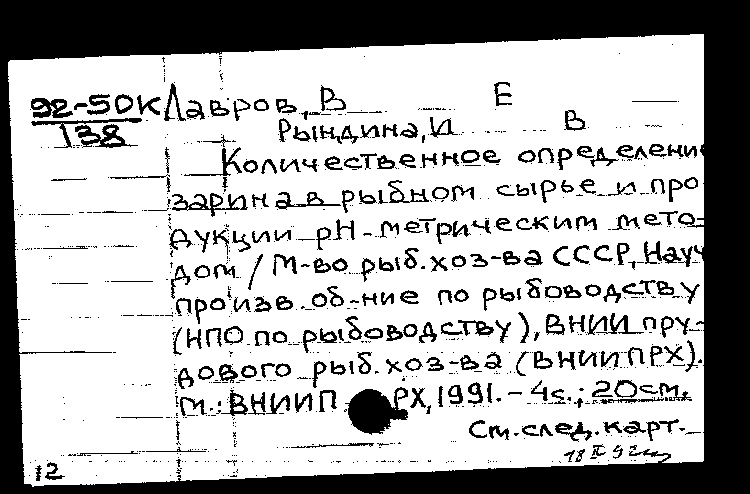 92-50К Лавров, В Е
138 Рындина, И В
Количественное определени
зарина в рыбном сырье и про
дукции рН-метрическим мето-
дом / М-во рыб. хоз-ва СССР, Науч
произв. об-ние по рыбоводству
(НПО по рыбоводству), ВНИИ пру-
дового рыб. хоз-ва (ВНИИПРХ).
М.: ВНИИП РХ, 1991. - 4с.; 20см.
См. след. карт.
12